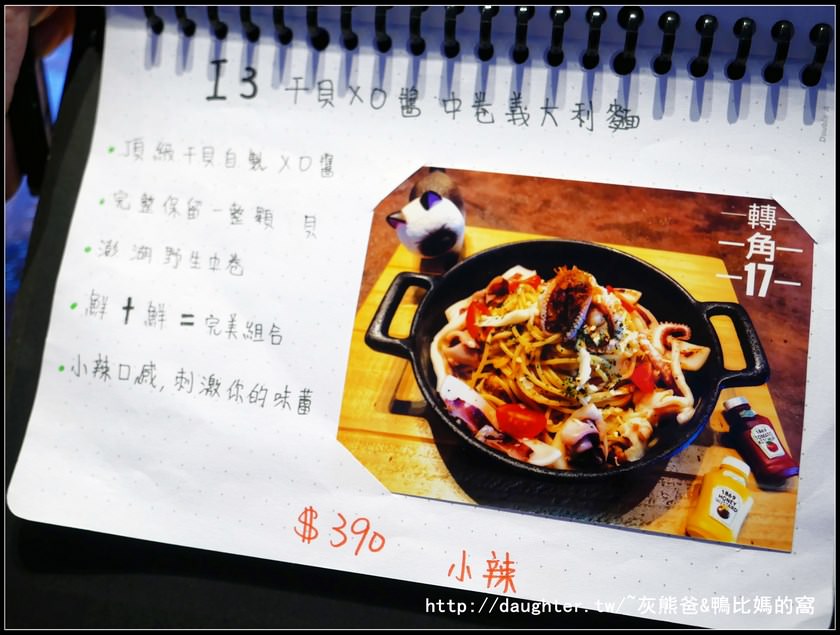 I3 干貝XO醬中卷義大利麵
頂級干貝自製XO醬
完整保留一整顆 貝
澎湖野生中卷
鮮+鮮=完美組合
小辣口感,刺激你的味蕾
轉
角
17
1869
TOMATO
KETCHUP
1869
HONEY
MUSTARD
$390
小辣
http://daughter.tw/~灰熊爸&鴨比媽的窩